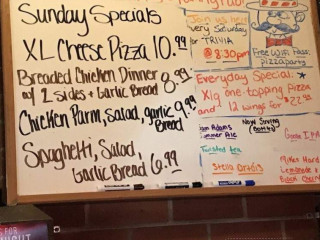 Sunday Specials
XL Cheese Pizza 10.99
Breaded Chicken Dinner
w/ 2 Sides + Garlic Bread 8.99
Chicken Parm, Salad, garlic Bread 9.99
Spaghetti, Salad,
Garlic Bread 6.99
Join us here
every Saturday
for TRIVIA
@ 8:30pm
Free Wifi Pass:
pizzaparty
Everyday Special:
Xlg one-topping Pizza
and 12 wings for $22.95
Now Serving
(Bottles)
Sam Adams
Summer Ale
Twisted tea
Stella Artois
Goose IPA
Mikes Hard
Lemonade &
Black Cherry
FOR